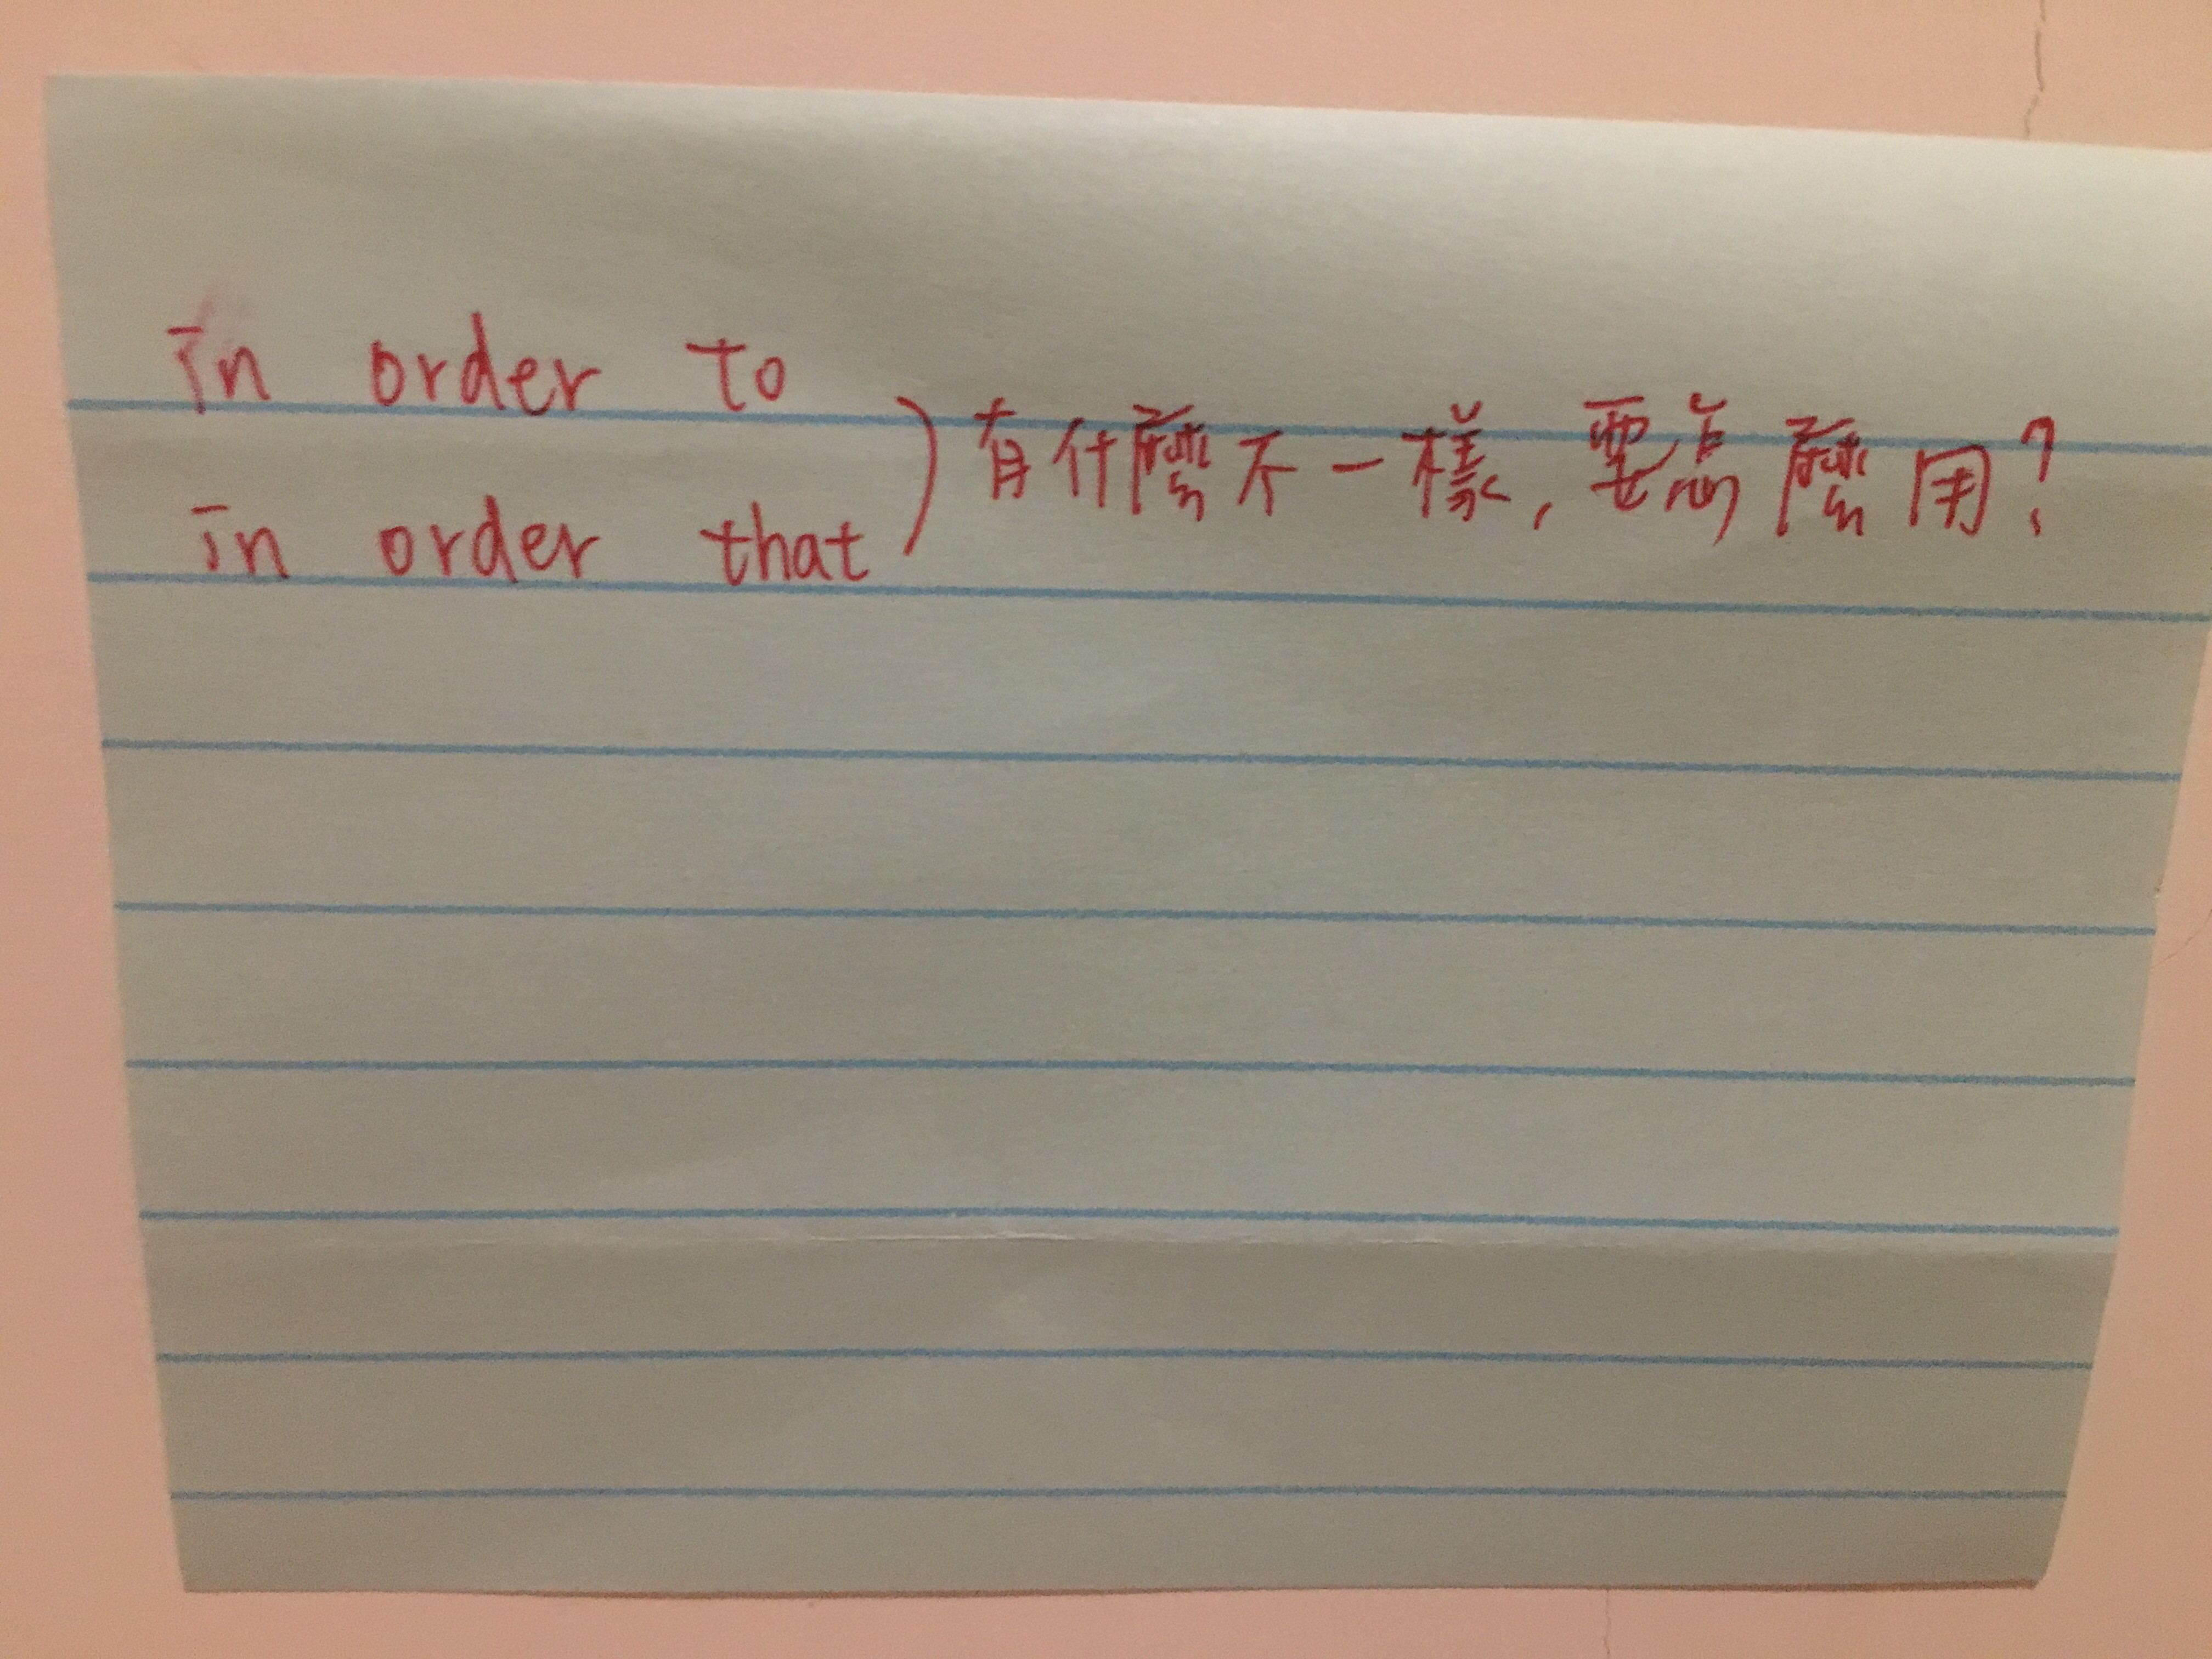 in order to
in order that
)有什麼不一樣,要怎麼用?